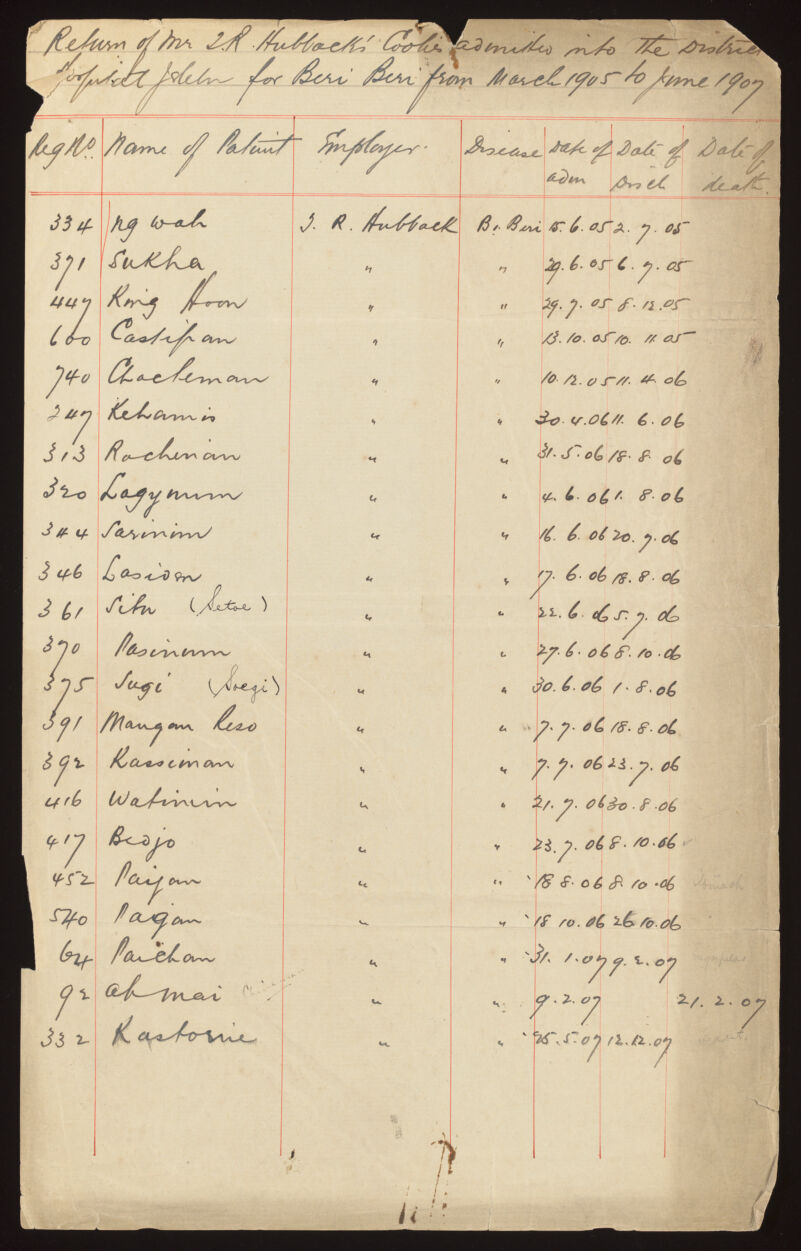 Return of Mr J R. Hubback's Coolies admitted into the District
Hospital Jelebu for Beri Beri from March 1905 to June 1907
Reg No. Name of Patient Employer. Disease Date of adm Date of Disch Date of death.
334 Ng wah J. R. Hubback B. Beri 15.6.05 2.7.05
371 Sukha " " 29.6.05 6.7.05
447 Kong Hoon " " 29.7.05 8.12.05
600 Castipan " " 13.10.05 10.11.05
740 Chocleman " " 10.12.05 11.4.06
247 Kehamis " " 30.4.06 11.6.06
313 Rochinian " " 31.5.06 18.8.06
320 Logynum " " 4.6.06 1.8.06
344 Sarinim " " 16.6.06 20.7.06
346 Lasiden " " 17.6.06 18.8.06
361 Situ (Setoe) " " 22.6.06 5.7.06
370 Pasinum " " 27.6.06 8.10.06
375 Sugi (Soegi) " " 30.6.06 1.8.06
391 Mangan Reso " " 7.7.06 18.8.06
392 Kassiman " " 7.7.06 23.7.06
416 Watinin " " 21.7.06 30.8.06
417 Bedjo " " 23.7.06 8.10.06
452 Paijan " " 18 8.06 8.10.06 Stomach
540 Paigan " " 18 10.06 26 10.06
64 Paichan " " 31.1.07 9.2.07
92 Ah mai " " 9.2.07 21.2.07
332 Kastorie " " 25.5.07 12.12.07